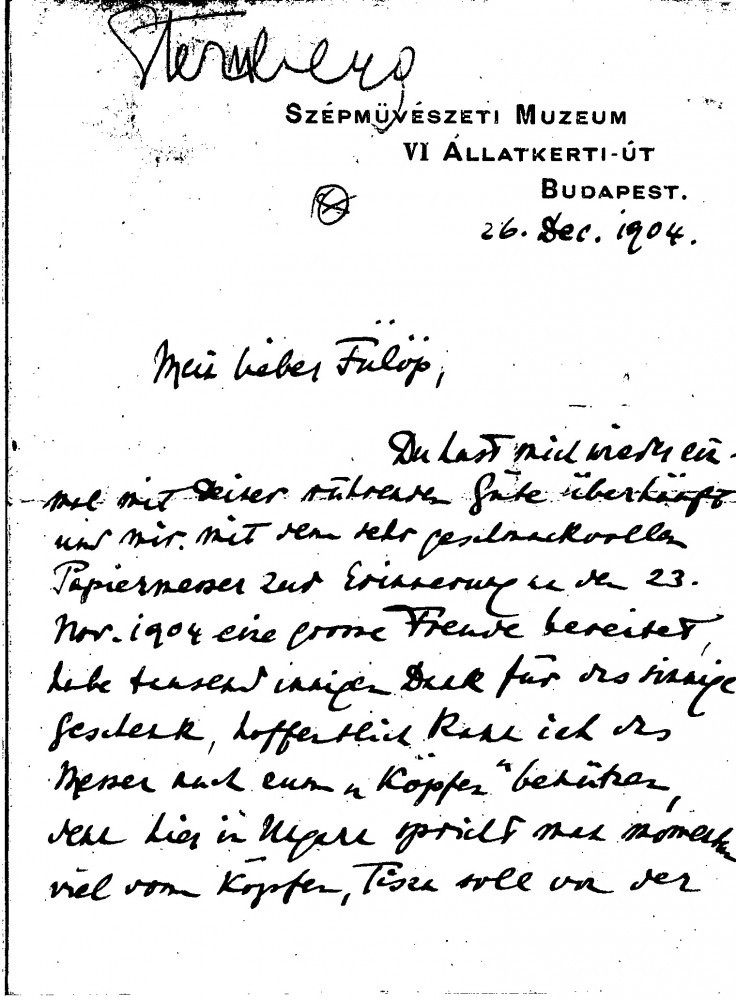 Sternberg
SZÉPMŰVÉSZETI MUZEUM
VI ÁLLATKERTI-ÚT
BUDAPEST.
26. Dec. 1904.
Mein lieber Fülöp,
Du hast mich wieder ein-
mal mit Deiner rührenden Güte überhäuft
und mir mit dem sehr geschmackvollen
Papiermesser zur Erinnerung an den 23.
Nov. 1904 eine grosse Freude bereitet,
habe tausend innigen Dank für das sinnige
Geschenk, hoffentlich kann ich das
Messer auch zum „Köpfen“ benützen,
denn hier in Ungarn spricht man momentan
viel vom Köpfen, Tisza soll von der